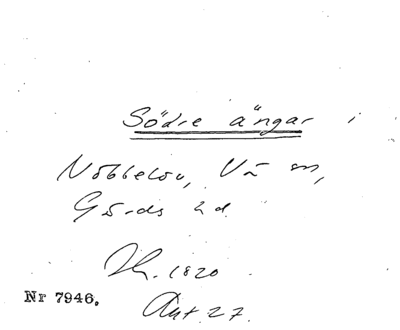 Södre ängar i
Nöbbelöv, Vä sn,
Gärds hd
Sk. 1820
Akt 27.
Nr 7946.